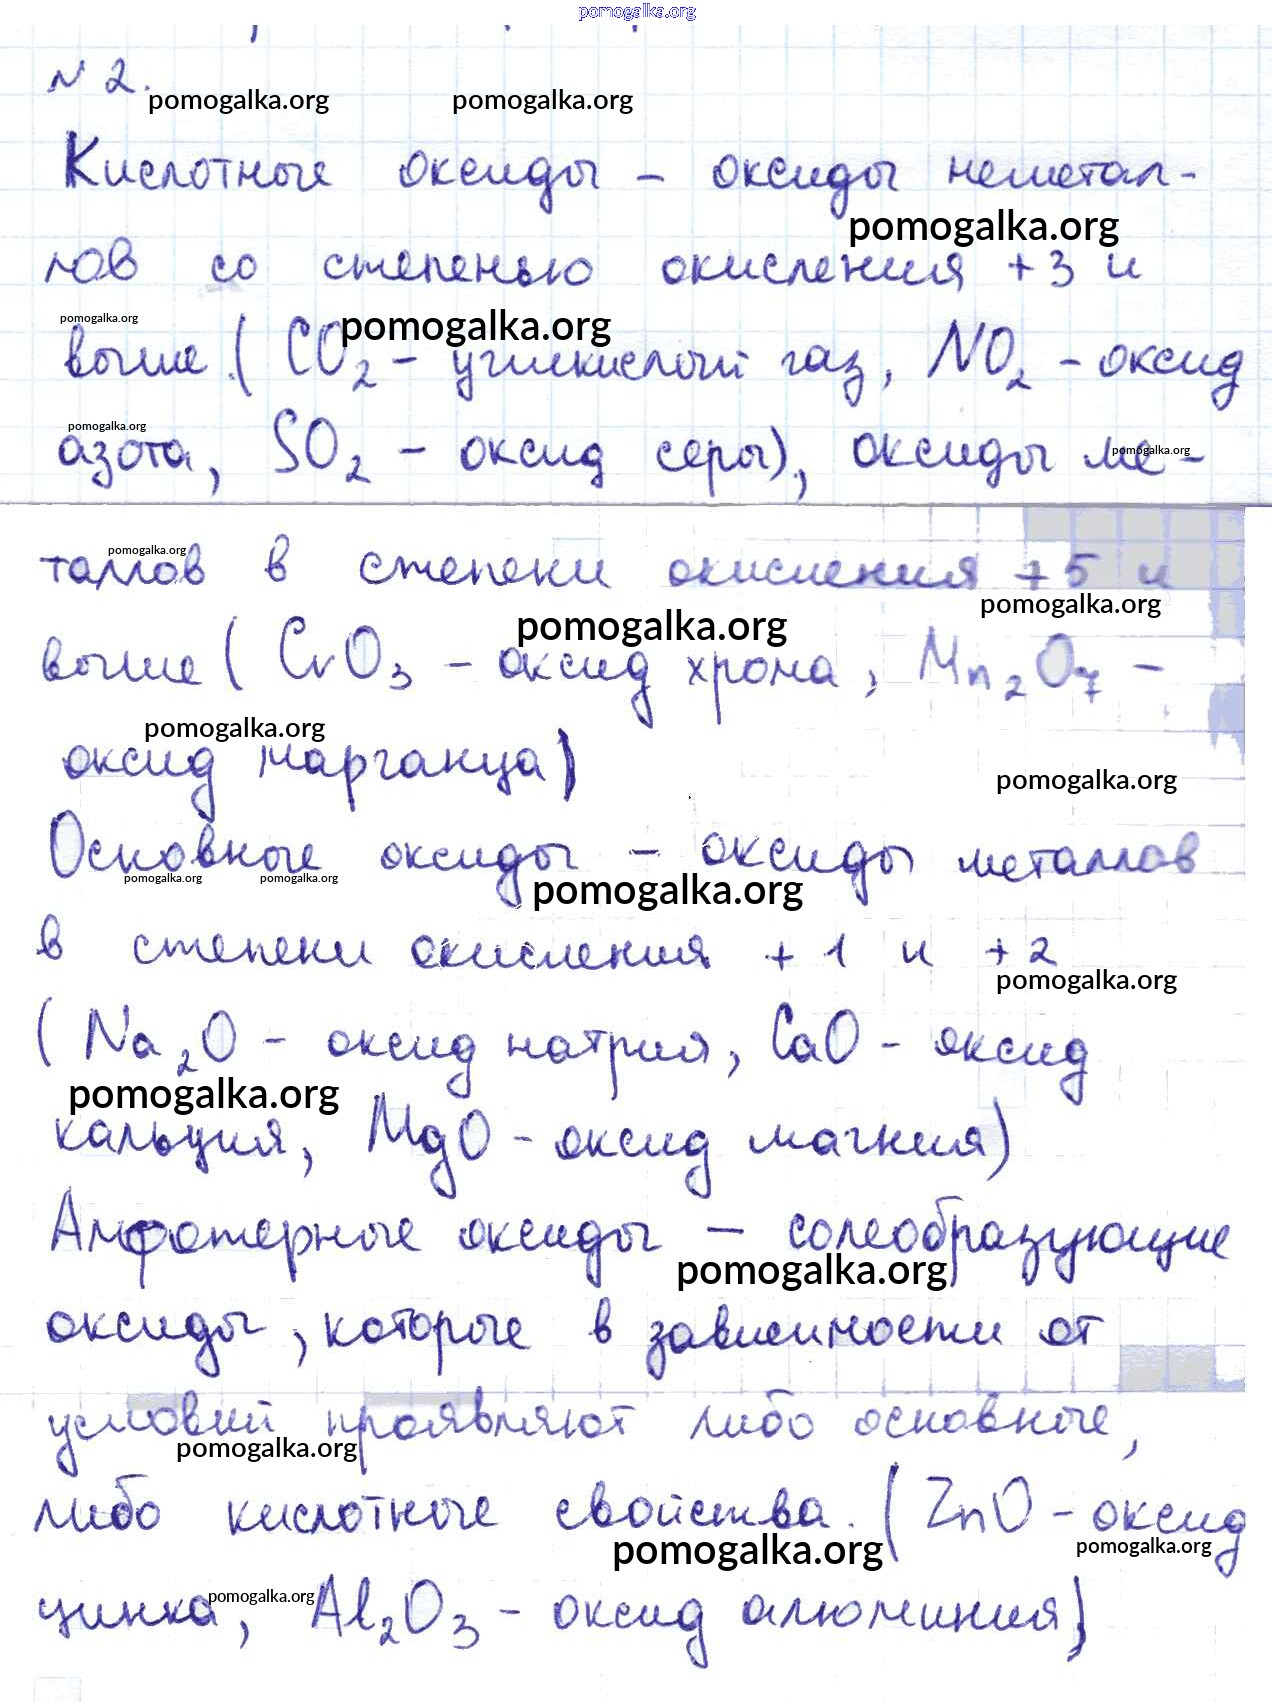 pomogalka.org
N 2.
pomogalka.org pomogalka.org
Кислотные оксиды – оксиды неметал-
pomogalka.org
лов со степенью окисления +3 и
pomogalka.org pomogalka.org
выше (CO2 – углекислый газ, NO2 – оксид
pomogalka.org pomogalka.org
азота, SO2 – оксид серы), оксиды ме-
pomogalka.org
таллов в степени окисления +5 и
pomogalka.org pomogalka.org
выше (CrO3 – оксид хрома, Mn2O7 –
pomogalka.org
оксид марганца)
pomogalka.org
Основные оксиды – оксиды металлов
pomogalka.org pomogalka.org pomogalka.org
в степени окисления +1 и +2
pomogalka.org
(Na2O – оксид натрия, CaO – оксид
pomogalka.org
кальция, MgO – оксид магния)
Амфотерные оксиды – солеобразующие
pomogalka.org
оксиды, которые в зависимости от
условий проявляют либо основные,
pomogalka.org
либо кислотные свойства. (ZnO – оксид
pomogalka.org pomogalka.org
цинка, Al2O3 – оксид алюминия)
pomogalka.org